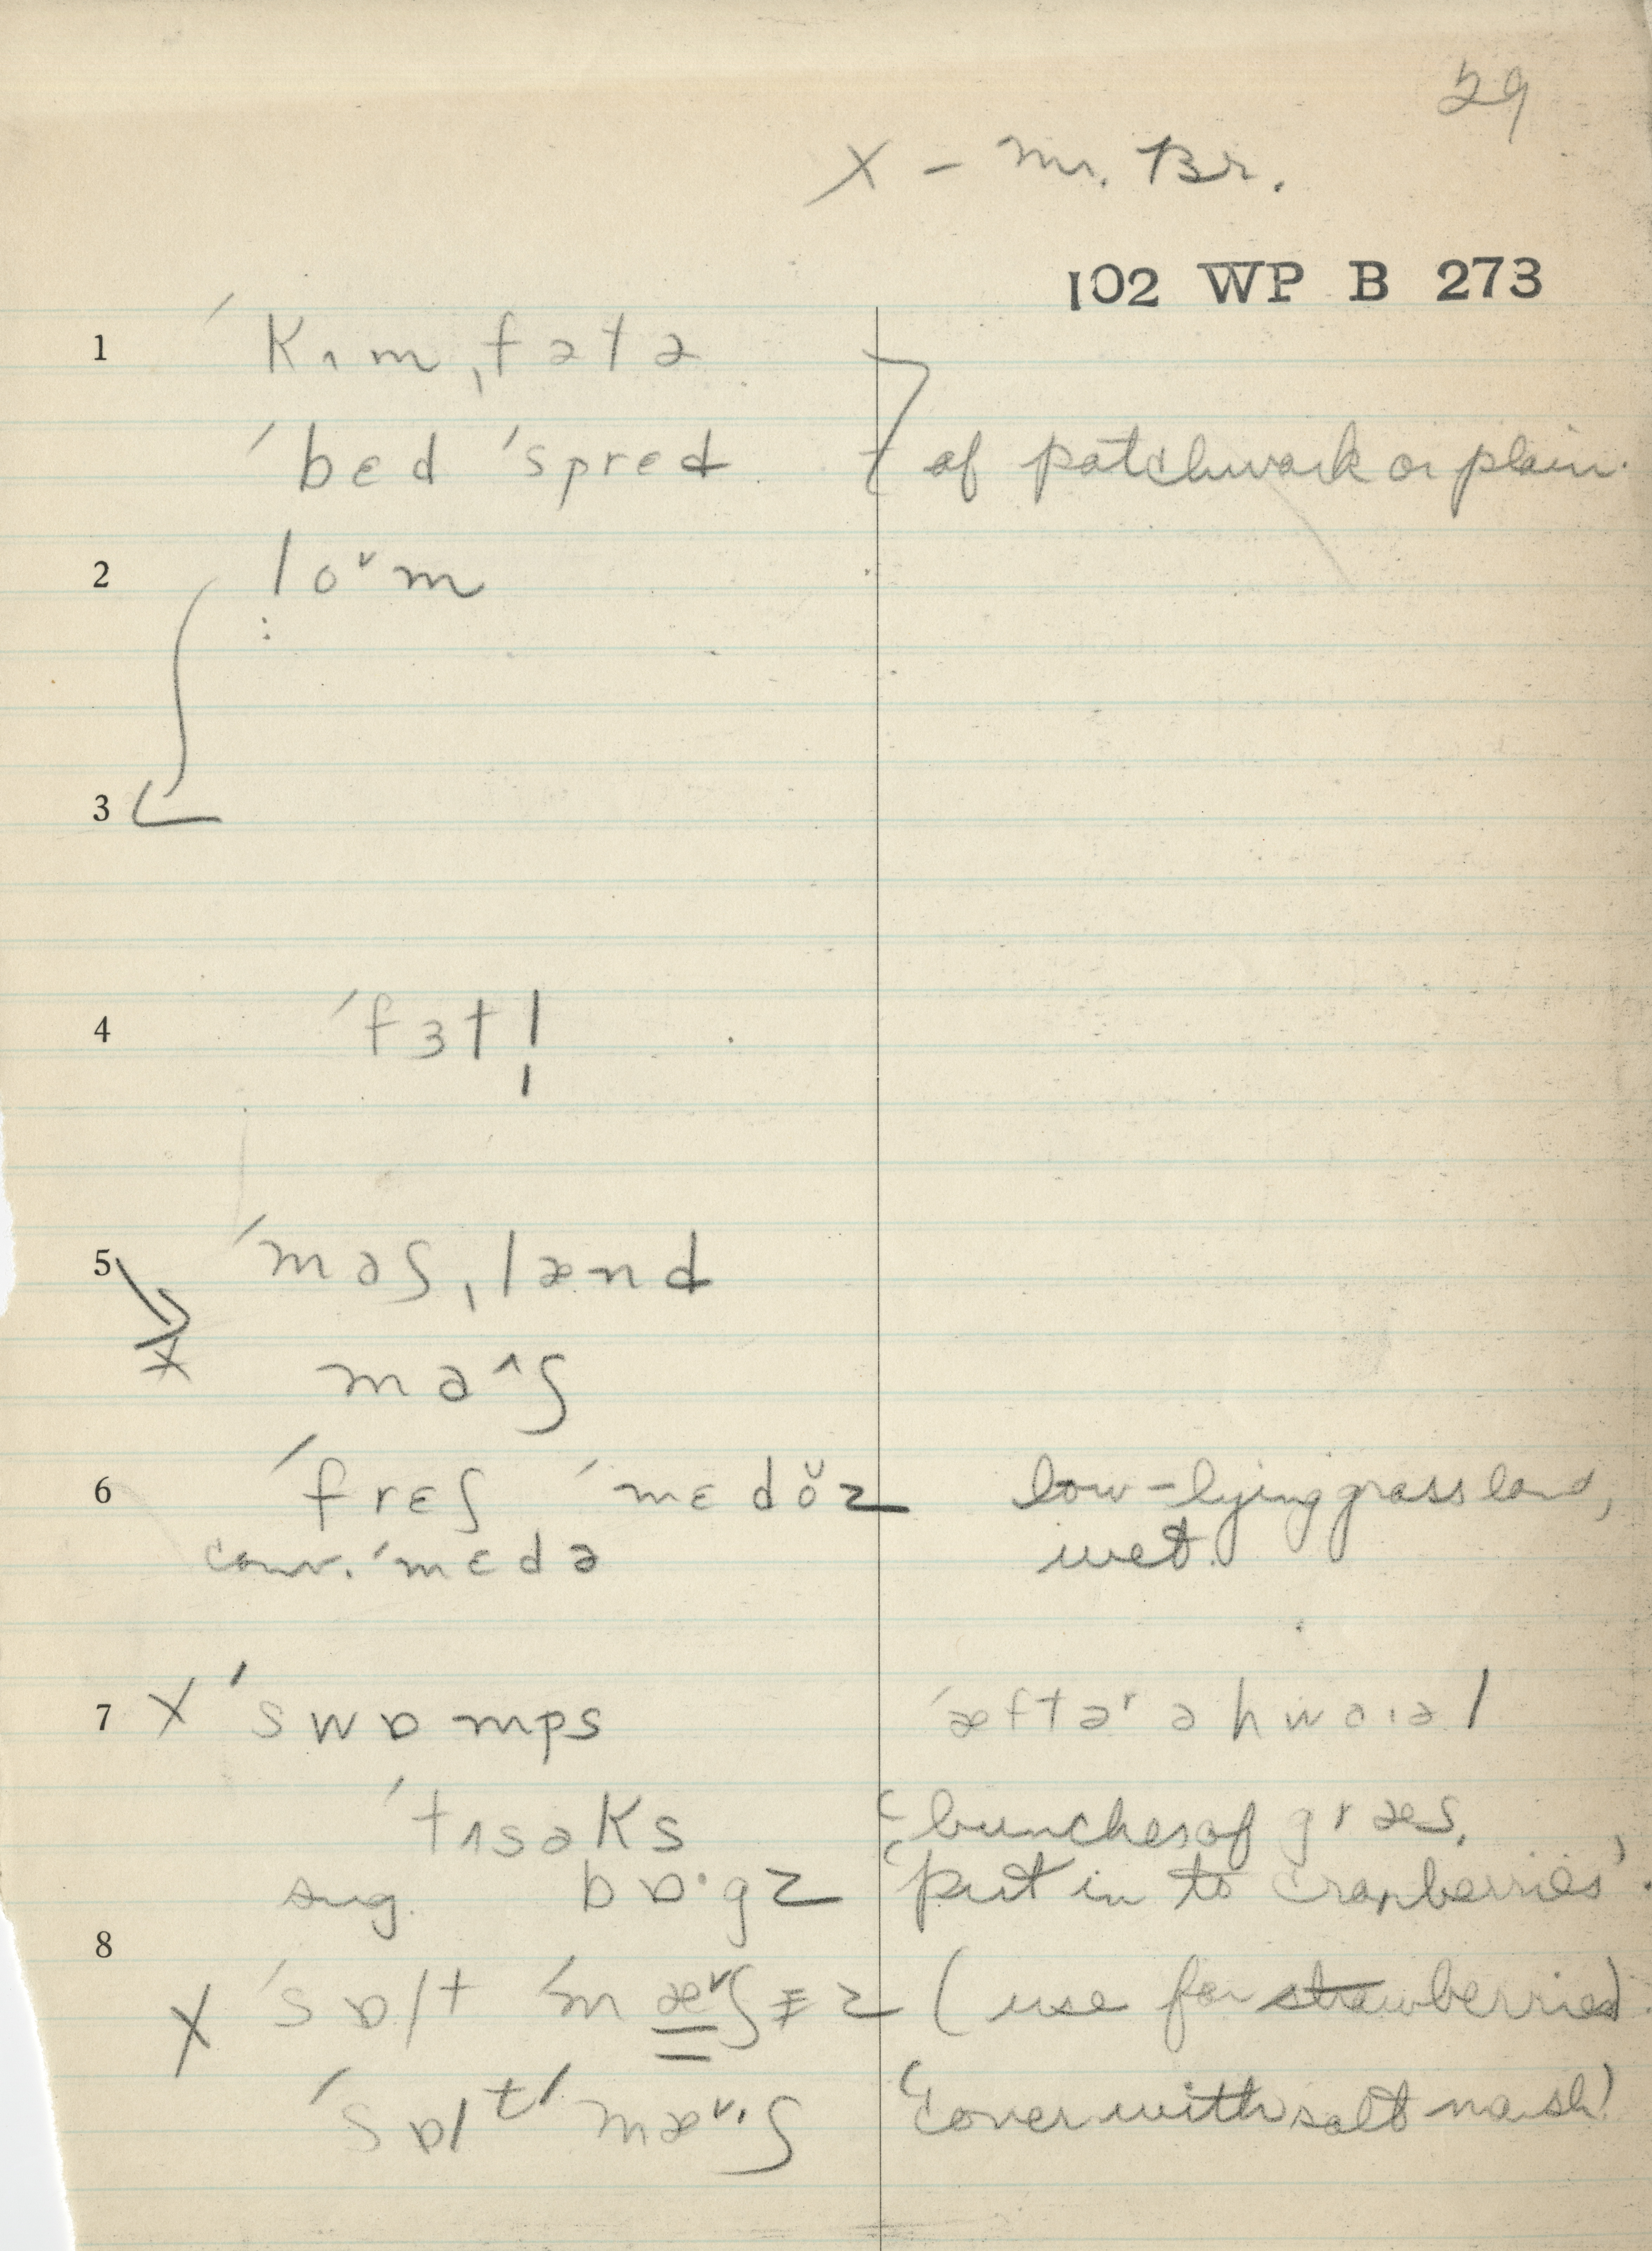 29
X – Mr. Br.
102 WP B 273
1 ˈkʌmˌfətə
ˈbɛd ˈsprɛd } of patchwork or plain.
2 loᵛm
3
4 ˈfɜtl̩
5 ˈmaʃˌlænd
X ma^ʃ
6 ˈfrɛʃ ˈmɛdŏz low-lying grassland,
conv. ˈmɛdə wet.
7 X ˈswɒmps ˈæftəʳ ə hwaɪəl
ˈtʌsəks 'bunches of græs.
sug. bɒ·gz 'put in to cranberries'.
8
X ˈsɒlt ˈmæᵛʃɪz (use for strawberries).
ˈsɒlᵗ ˈmæᵛ·ʃ 'cover with salt marsh'